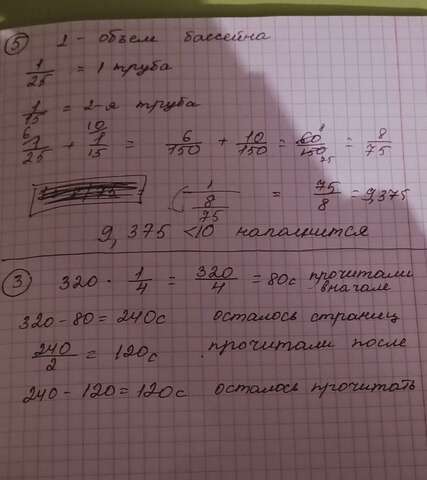 ⑤ 1 - объем бассейна
1/25 = 1 труба
1/15 = 2-я труба
6 1/25 + 10 1/15 = 6/150 + 10/150 = 60/150 8/75 = 8/75
1/(8/75) = 75/8 = 9,375
9,375 < 10 наполнится
③ 320 · 1/4 = 320/4 = 80с прочитали вначале
320 - 80 = 240с осталось страниц
240/2 = 120с прочитали после
240 - 120 = 120с осталось прочитать